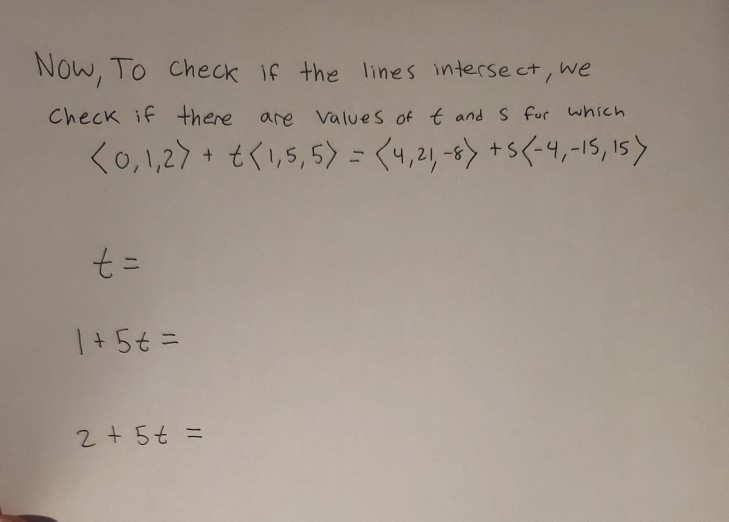 Now, To check if the lines intersect, we
check if there are values of t and s for which
⟨0,1,2⟩ + t⟨1,5,5⟩ = ⟨4,21,-8⟩ + s⟨-4,-15,15⟩
t =
1 + 5t =
2 + 5t =